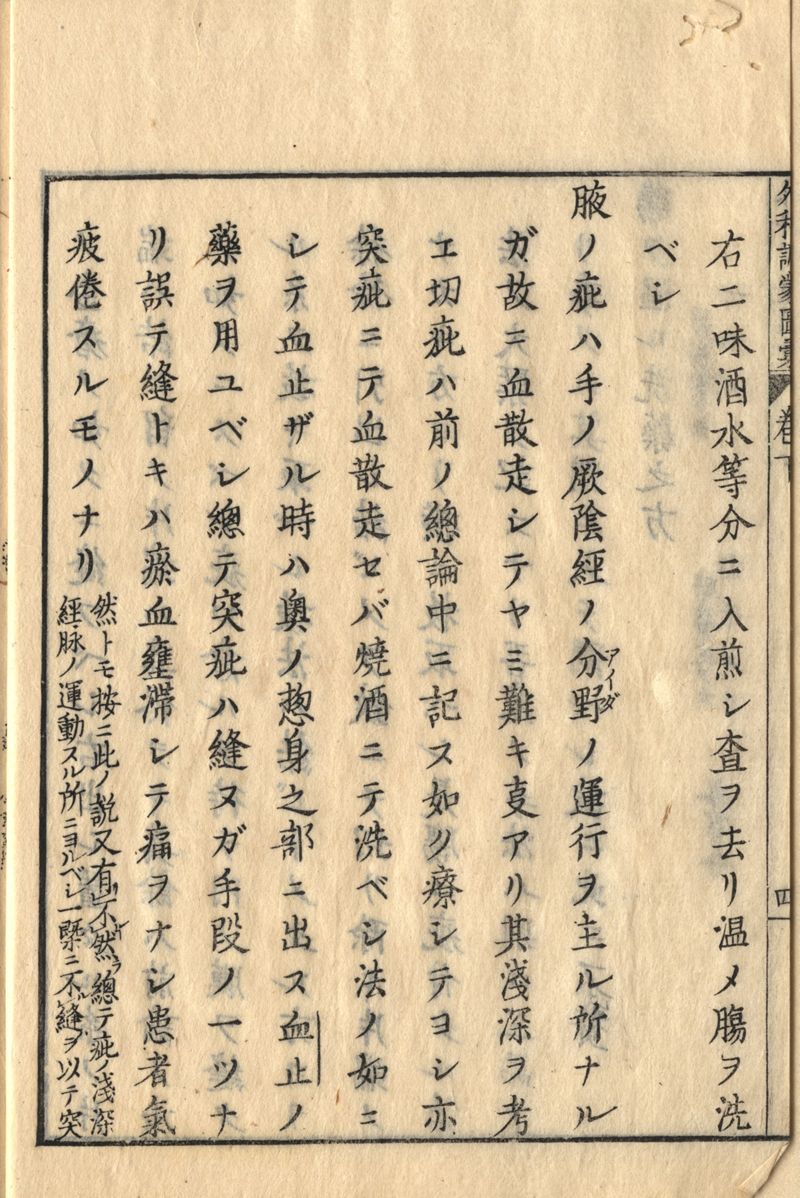 外科訓蒙圖彙 卷下 四
右二味酒水等分ニ入煎シ査ヲ去リ温メ膓ヲ洗
ベシ
腋ノ疵ハ手ノ厥陰經ノ分野アイダノ運行ヲ主ル所ナル
ガ故ニ血散走シテヤミ難キ㕝アリ其淺深ヲ考
エ切疵ハ前ノ總論中ニ記ス如ク療シテヨシ亦
突疵ニテ血散走セバ焼酒ニテ洗ベシ法ノ如ニ
シテ血止ザル時ハ奥ノ惣身之部ニ出ス血止ノ
藥ヲ用ユベシ總テ突疵ハ縫ヌガ手段ノ一ツナ
リ誤テ縫トキハ瘀血壅滞シテ痛ヲナシ患者氣
疲倦スルモノナリ
然トモ按ニ此ノ説又有不然總テ疵ノ淺深
經脉ノ運動スル所ニヨルベシ一槩ニ不縫ヲ以テ突